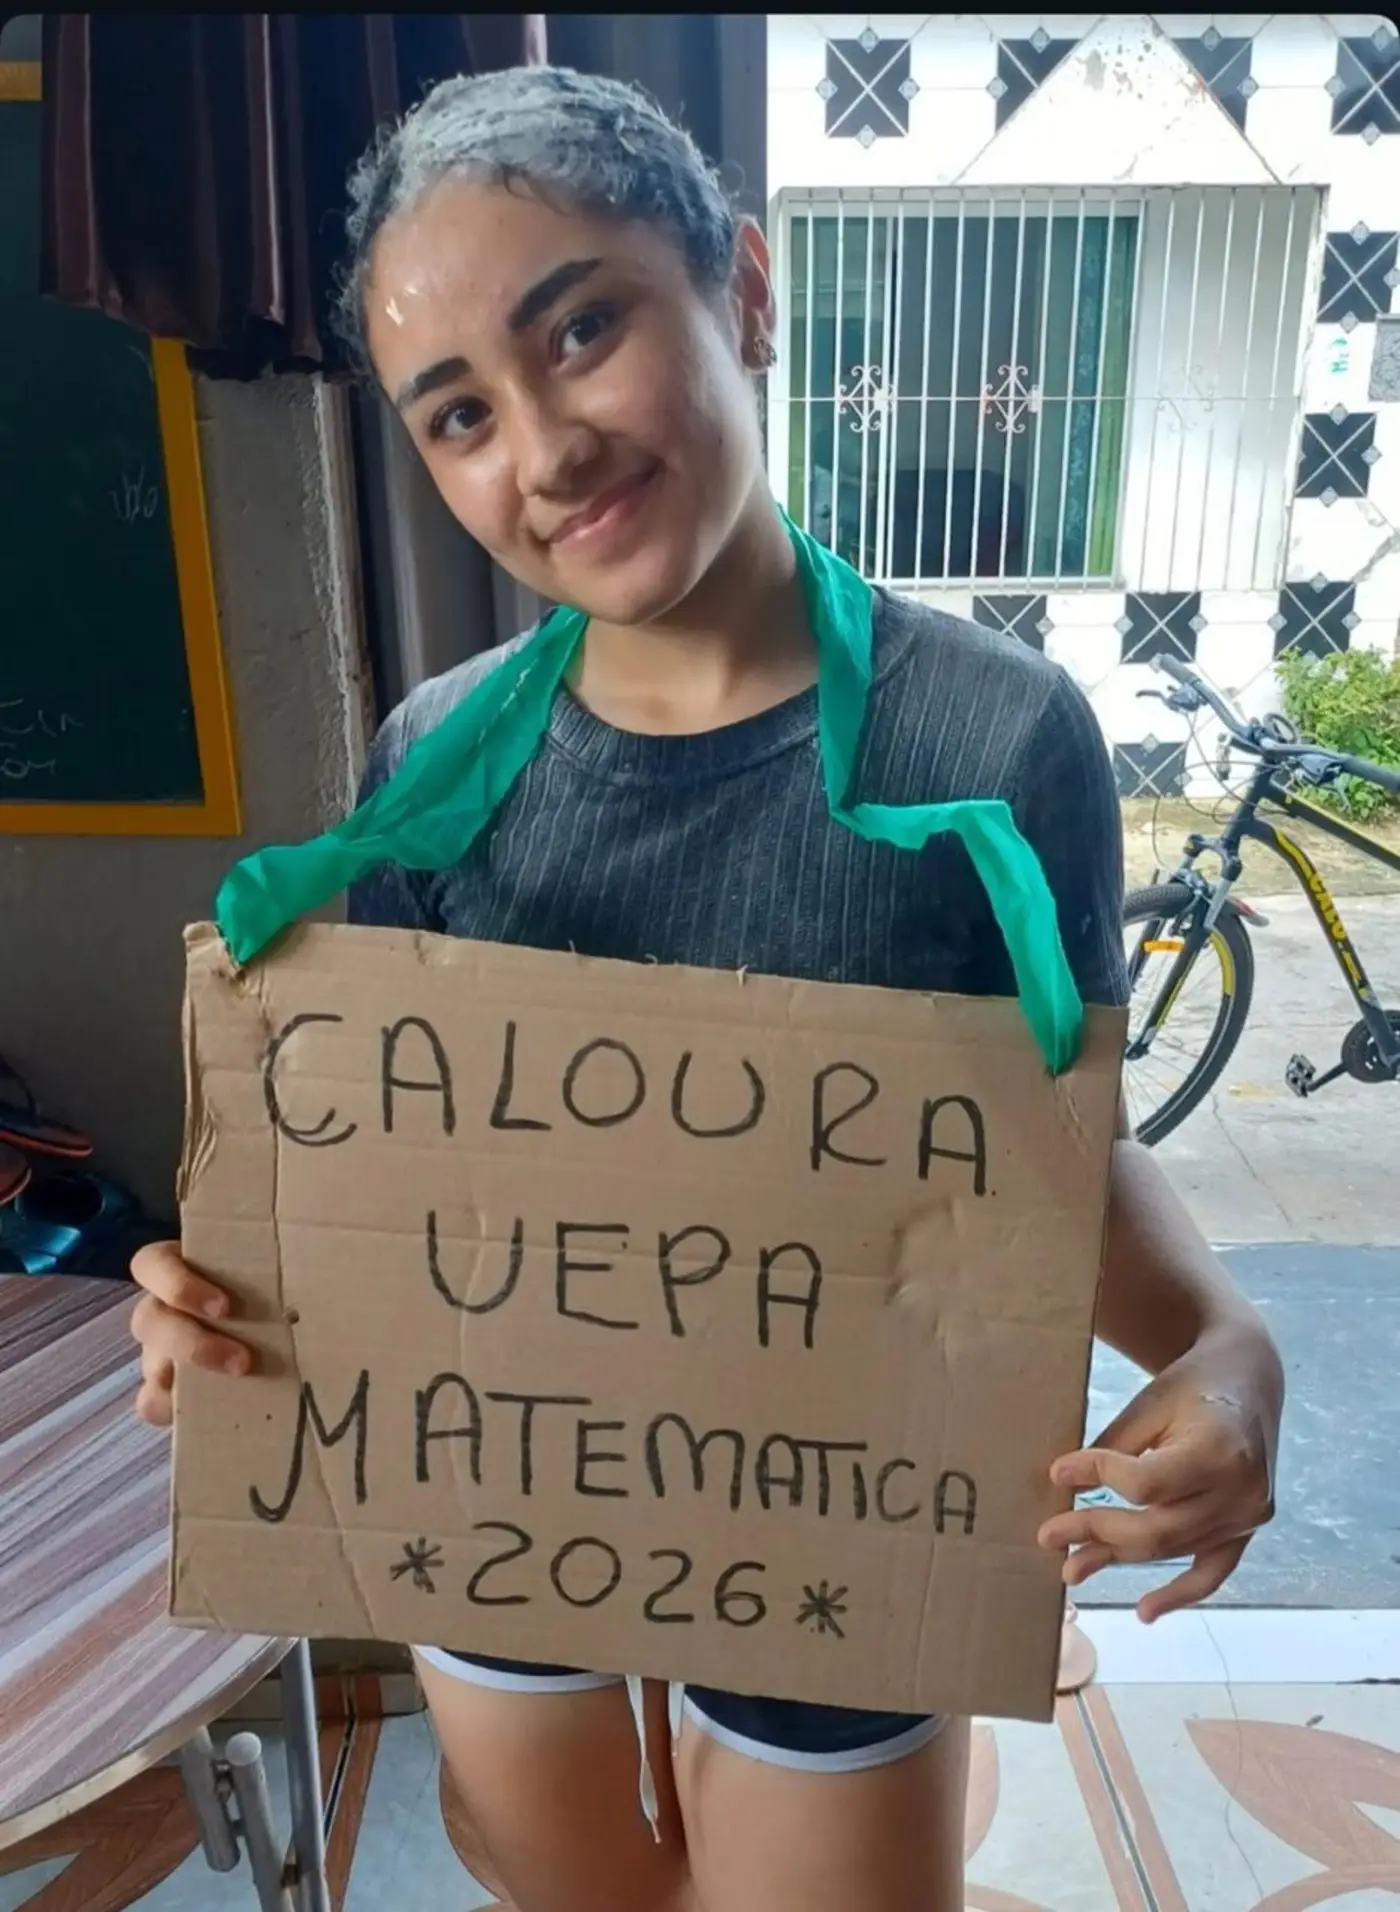 CALOURA
UEPA
MATEMATICA
*2026*
CALOI